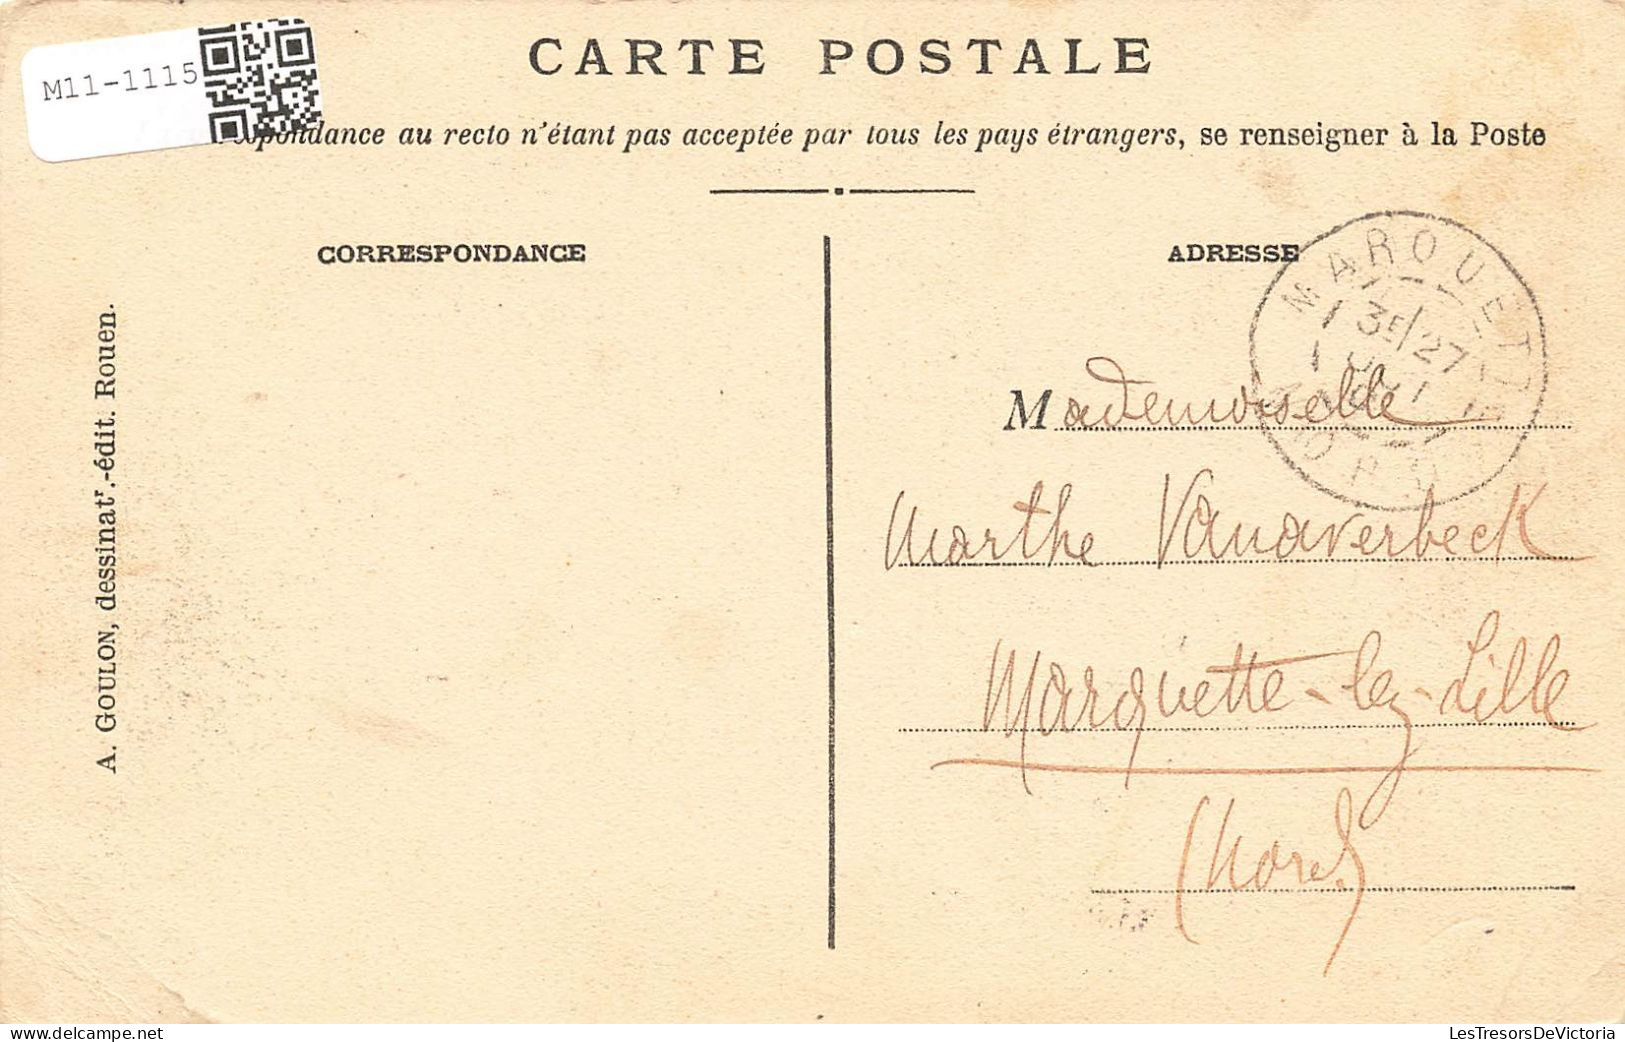 M11-1115
CARTE POSTALE
au recto n'étant pas acceptée par tous les pays étrangers, se renseigner à la Poste
CORRESPONDANCE
ADRESSE
MARQUETTE
NORD
A. GOULON, dessinatr.-édit. Rouen.
Mademoiselle
Marthe Vanaverbeck
Marquette-lez-Lille
(Nord)
LesTresorsDeVictoria